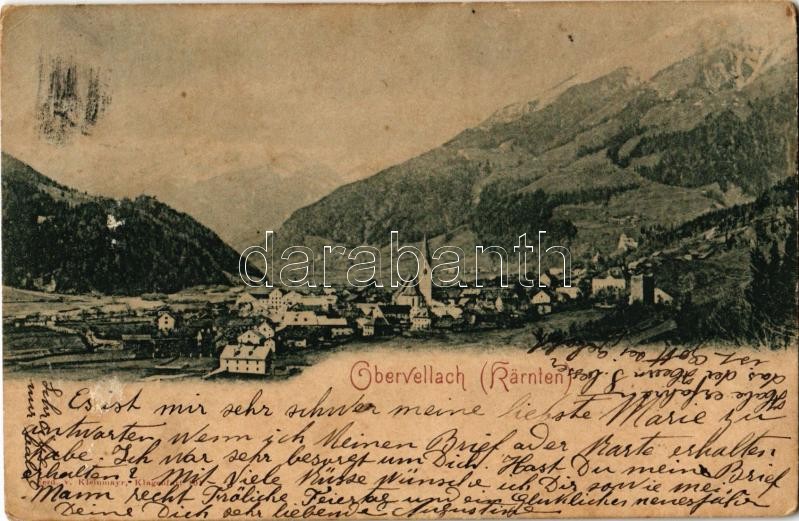 darabanth
Obervellach (Kärnten)
Es ist mir sehr schwer meine liebste Marie zu
antworten Wenn ich Keinen Brief ader Karte erhalten
habe. Ich war sehr besorgt um Dich. Hast Du meine Brief
erhalten? Mit Viele Küsse Wünsche ich Dir sowie mei
Mann recht Fröliche Feiertag und ein Glückliches neuesjahr
Deine Dich sehr liebende Augustine
v. Kleinmayr, Klagenfurt